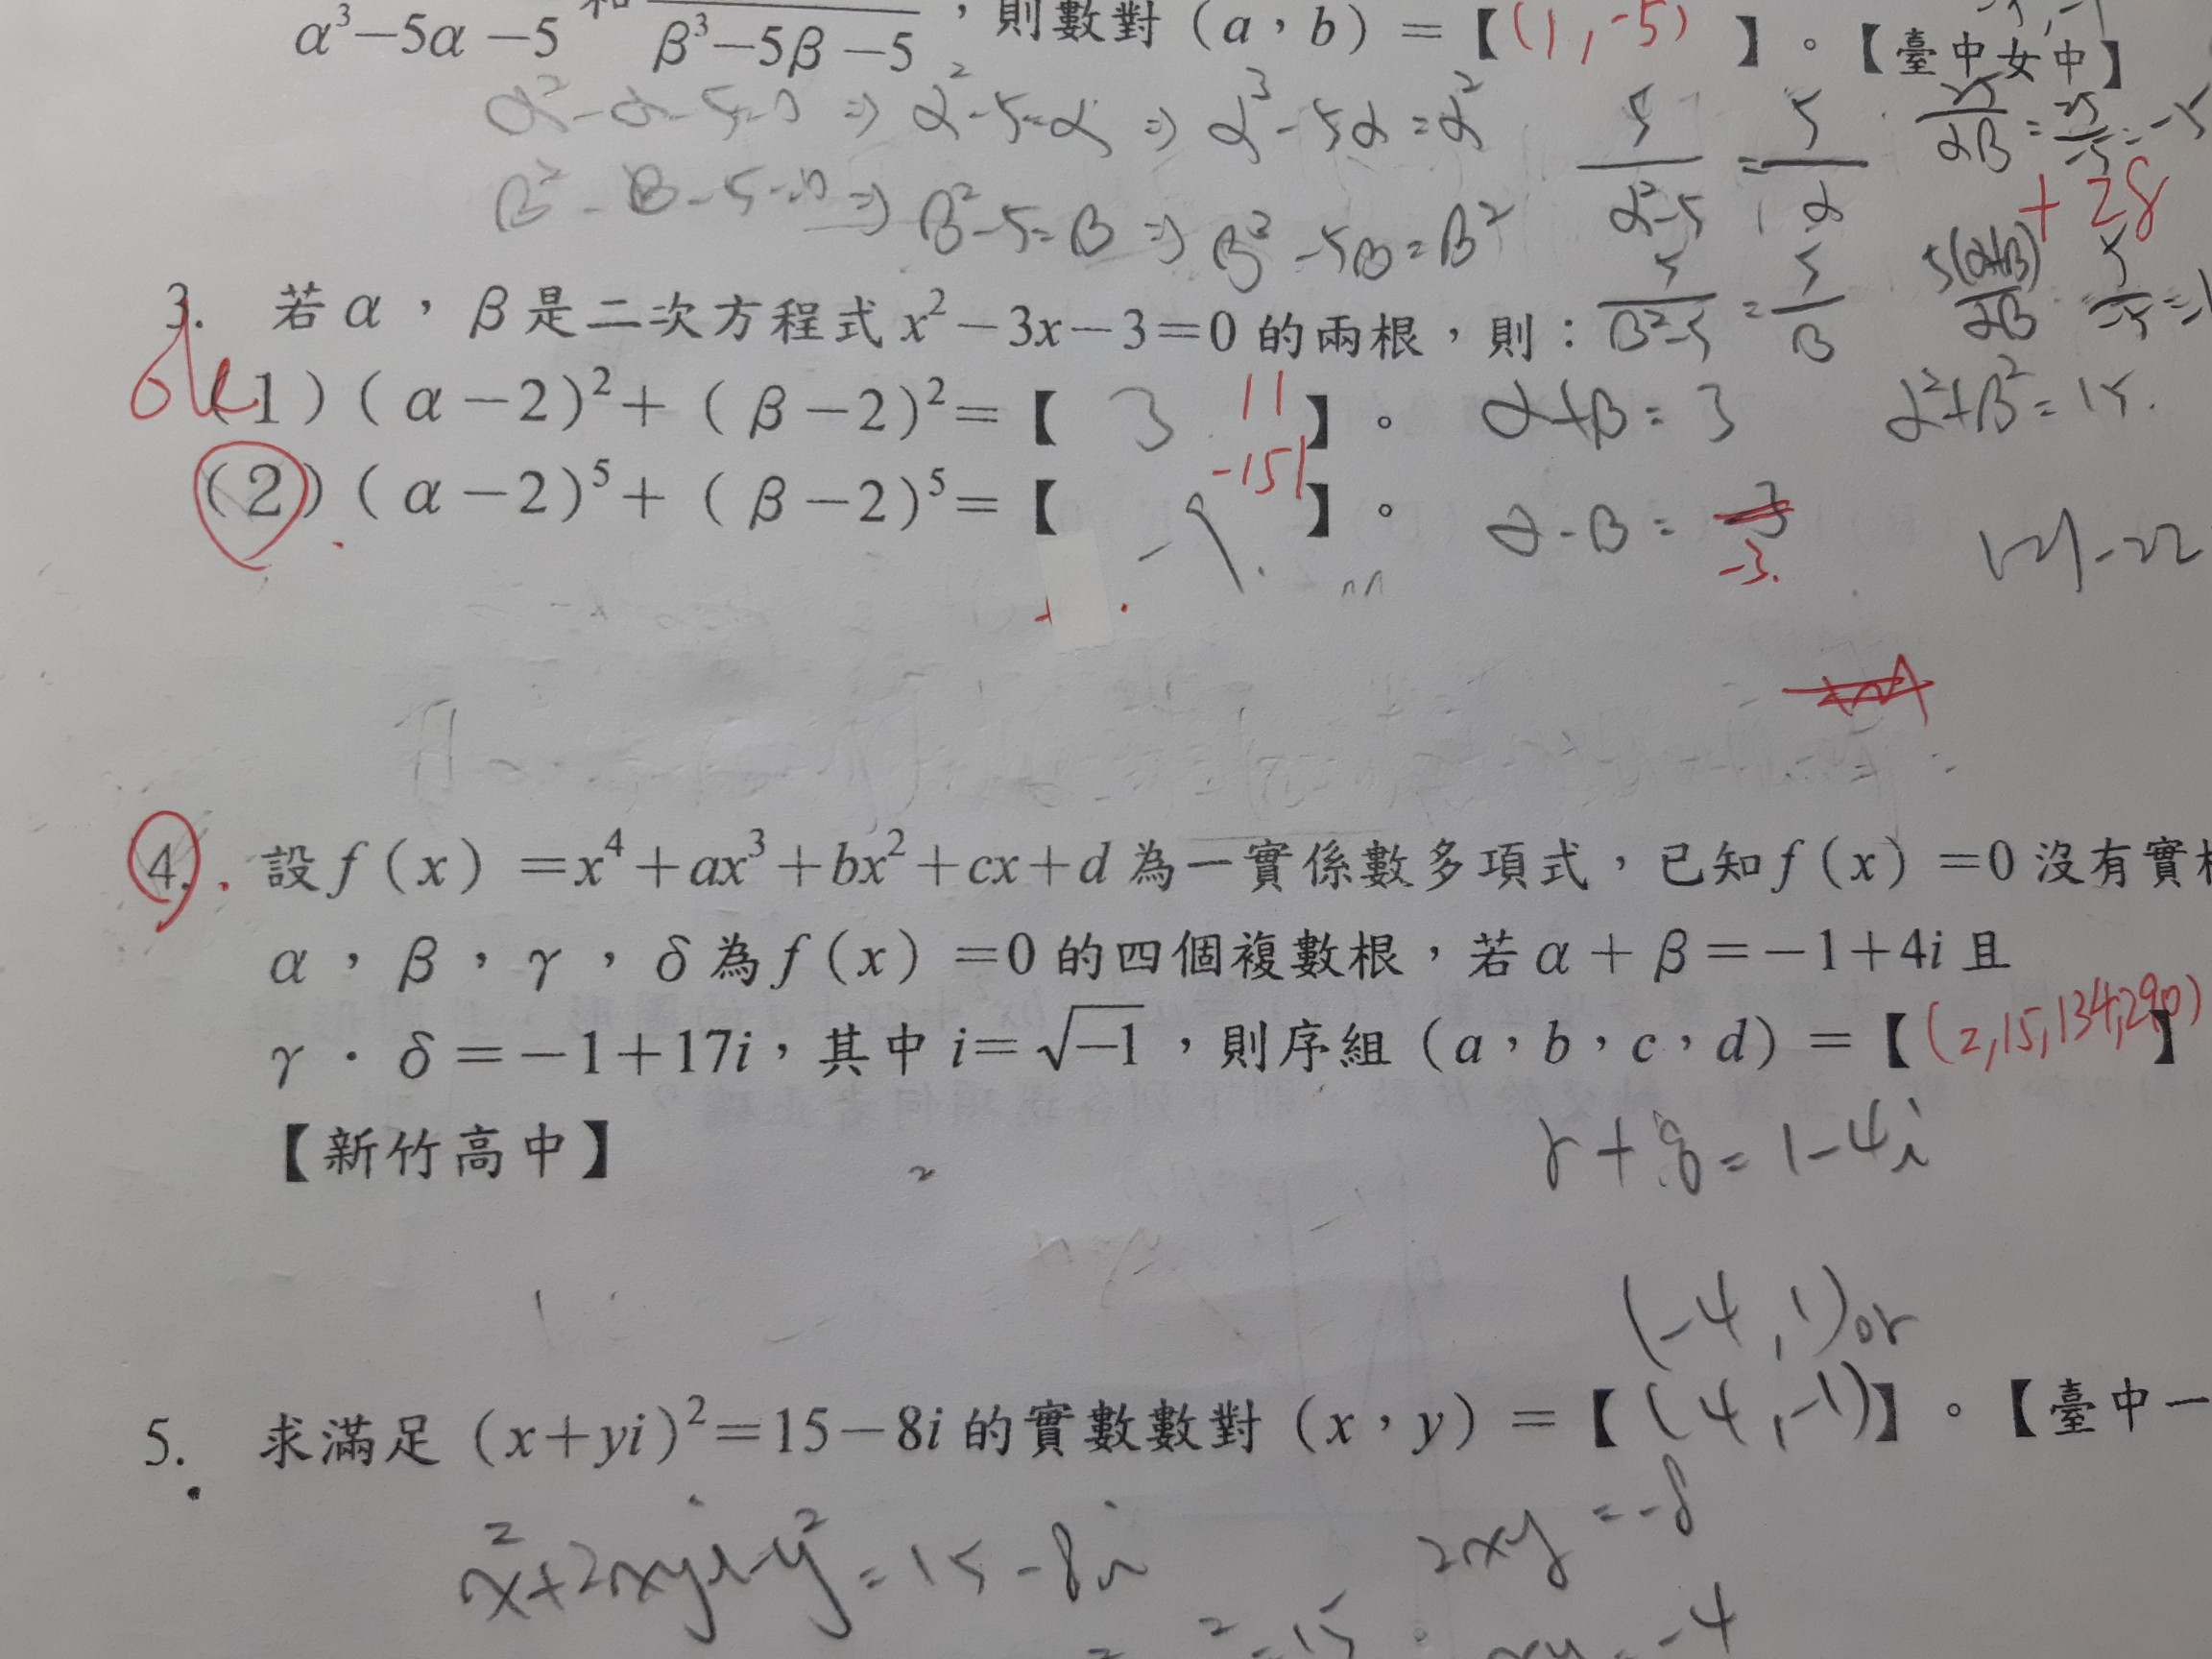 α³−5α−5 和 β³−5β−5 ，則數對（a，b）＝【(1,-5)】。【臺中女中】
α²-α-5=0 ⇒ α²-5=α ⇒ α³-5α=α² 5/α²-5 = 5/α 25/αβ = 25/-5 = -5
β²-β-5=0 ⇒ β²-5=β ⇒ β³-5β=β² 5/β²-5 = 5/β 5(α+β)/αβ 5/-5 =-1
+28
3. 若α，β是二次方程式x²−3x−3＝0的兩根，則：
ok
（1）（α−2）²＋（β−2）²＝【3 11】。 α+β=3 α²+β²=15.
（2）（α−2）⁵＋（β−2）⁵＝【-9. -151】。 α-β=
-3.
121-22
4. 設f（x）＝x⁴＋ax³＋bx²＋cx＋d為一實係數多項式，已知f（x）＝0沒有實
α，β，γ，δ為f（x）＝0的四個複數根，若α＋β＝−1＋4i且
γ．δ＝−1＋17i，其中i＝√−1，則序組（a，b，c，d）＝【(2,15,134,290)】
【新竹高中】
γ+δ=1-4i
(-4,1)or
5. 求滿足（x＋yi）²＝15−8i的實數數對（x，y）＝【(4,-1)】。【臺中一
x²+2xyi-y²=15-8i 2xy=-8
²=15 xy=-4